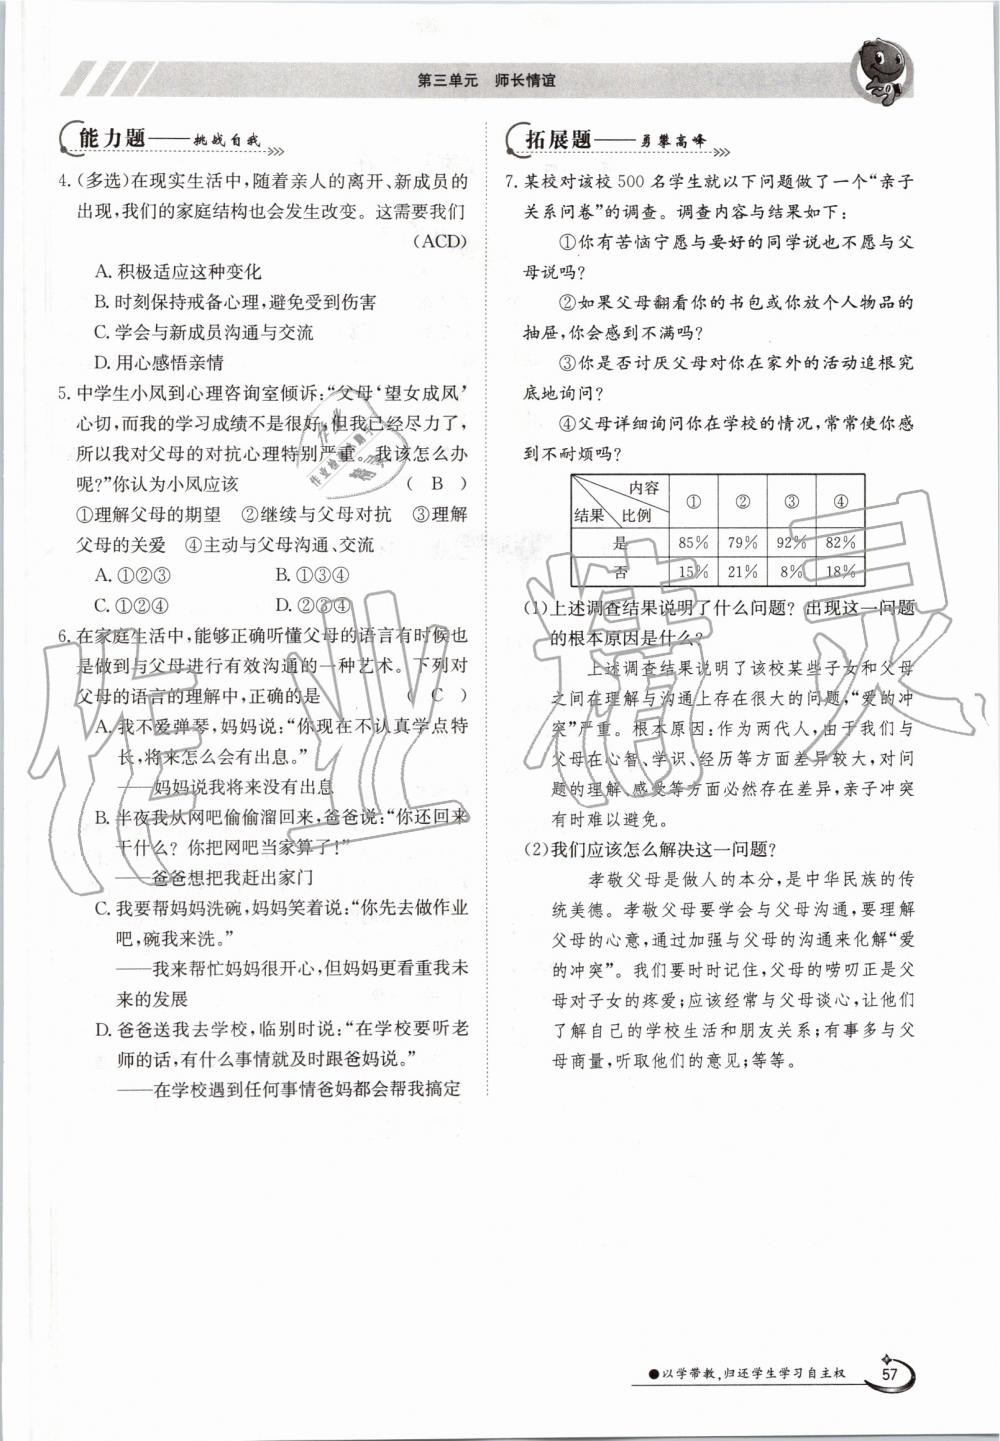 第三单元　师长情谊
能力题——挑战自我
4.(多选)在现实生活中,随着亲人的离开、新成员的
出现,我们的家庭结构也会发生改变。这需要我们
(ACD)
A. 积极适应这种变化
B. 时刻保持戒备心理,避免受到伤害
C. 学会与新成员沟通与交流
D. 用心感悟亲情
5. 中学生小凤到心理咨询室倾诉:“父母‘望女成凤’
心切,而我的学习成绩不是很好,但我已经尽力了,
所以我对父母的对抗心理特别严重。我该怎么办
呢?”你认为小凤应该　(　B　)
①理解父母的期望　②继续与父母对抗　③理解
父母的关爱　④主动与父母沟通、交流
A. ①②③　B. ①③④
C. ①②④　D. ②③④
6. 在家庭生活中,能够正确听懂父母的语言有时候也
是做到与父母进行有效沟通的一种艺术。下列对
父母的语言的理解中,正确的是　(　C　)
A. 我不爱弹琴,妈妈说:“你现在不认真学点特
长,将来怎么会有出息。”
——妈妈说我将来没有出息
B. 半夜我从网吧偷偷溜回来,爸爸说:“你还回来
干什么?你把网吧当家算了!”
——爸爸想把我赶出家门
C. 我要帮妈妈洗碗,妈妈笑着说:“你先去做作业
吧,碗我来洗。”
——我来帮忙妈妈很开心,但妈妈更看重我未
来的发展
D. 爸爸送我去学校,临别时说:“在学校要听老
师的话,有什么事情就及时跟爸妈说。”
——在学校遇到任何事情爸妈都会帮我搞定
拓展题——勇攀高峰
7. 某校对该校 500 名学生就以下问题做了一个“亲子
关系问卷”的调查。调查内容与结果如下:
①你有苦恼宁愿与要好的同学说也不愿与父
母说吗?
②如果父母翻看你的书包或你放个人物品的
抽屉,你会感到不满吗?
③你是否讨厌父母对你在家外的活动追根究
底地询问?
④父母详细询问你在学校的情况,常常使你感
到不耐烦吗?
内容
结果　比例　①　②　③　④
是　85%　79%　92%　82%
否　15%　21%　8%　18%
(1)上述调查结果说明了什么问题?出现这一问题
的根本原因是什么?
上述调查结果说明了该校某些子女和父母
之间在理解与沟通上存在很大的问题,“爱的冲
突”严重。根本原因:作为两代人,由于我们与
父母在心智、学识、经历等方面差异较大,对问
题的理解、感受等方面必然存在差异,亲子冲突
有时难以避免。
(2)我们应该怎么解决这一问题?
孝敬父母是做人的本分,是中华民族的传
统美德。孝敬父母要学会与父母沟通,要理解
父母的心意,通过加强与父母的沟通来化解“爱
的冲突”。我们要时时记住,父母的唠叨正是父
母对子女的疼爱;应该经常与父母谈心,让他们
了解自己的学校生活和朋友关系;有事多与父
母商量,听取他们的意见;等等。
作业精灵
●以学带教,归还学生学习自主权
57